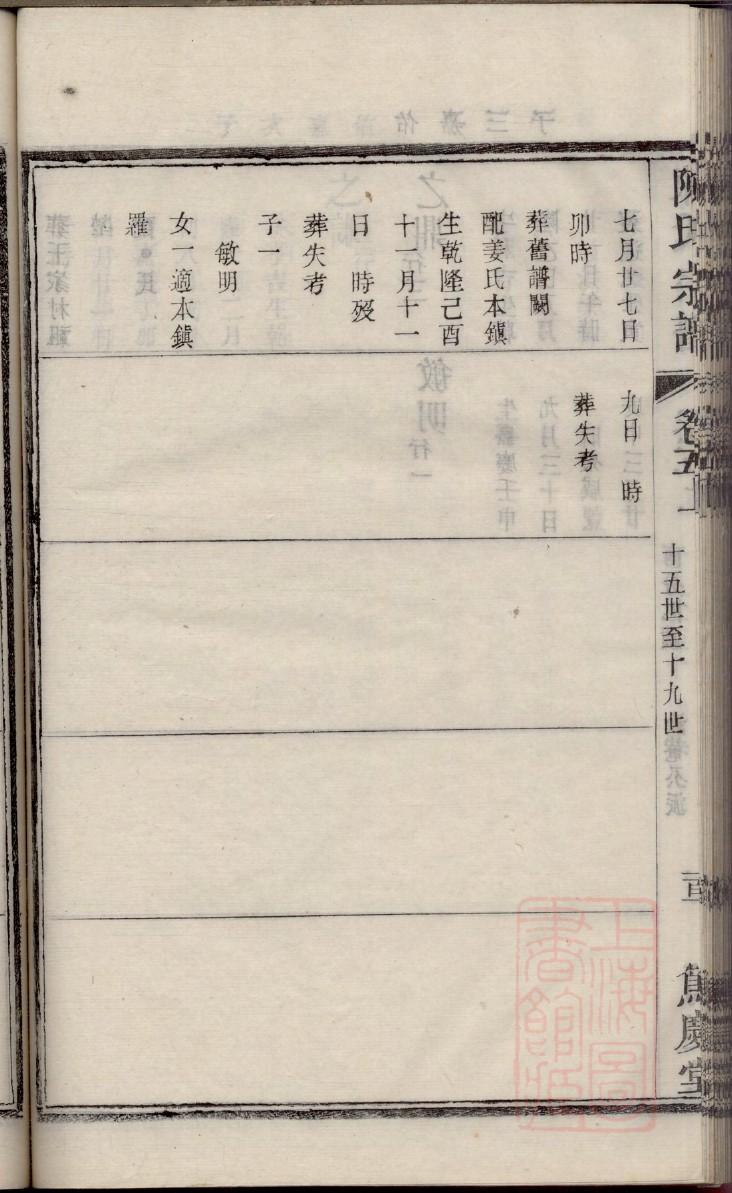 陳氏宗譜
卷五上
十五世至十九世
篤慶堂
七月廿七日
卯時
葬舊譜闕
配姜氏本鎮
生乾隆己酉
十一月十一
日　時歿
葬失考
子一
敏明
女一適本鎮
羅
九日　時
葬失考
上海圖書館藏